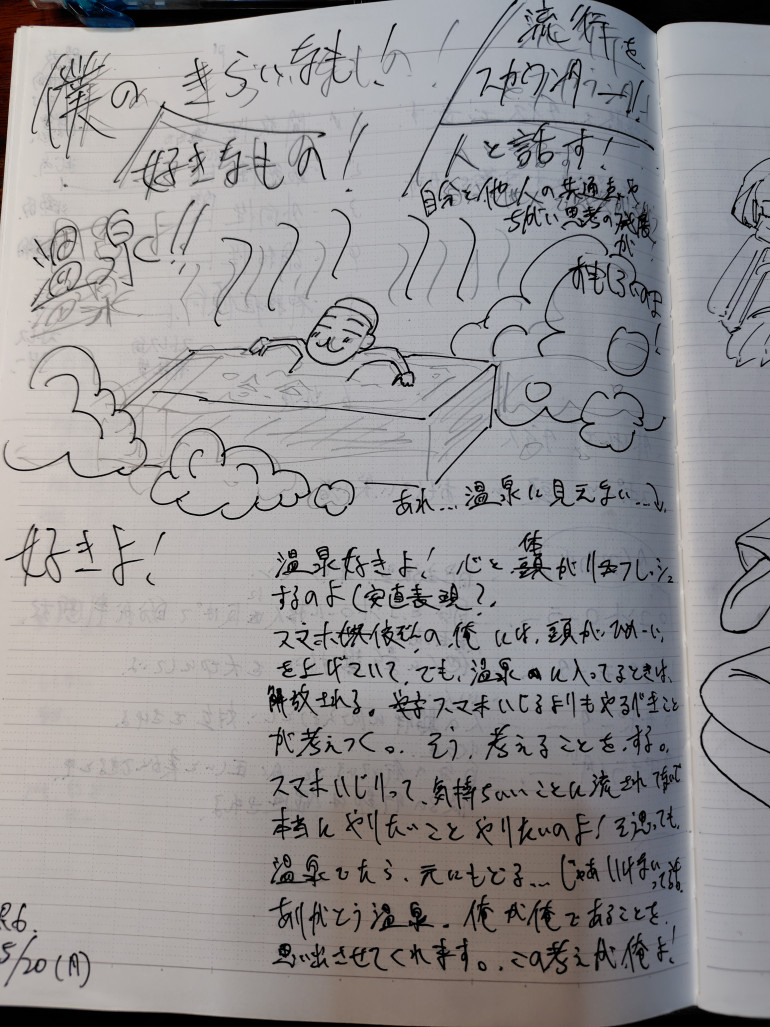 僕の きらいなもの!
好きなもの!
流行を
スカウンタラール!
人と話す!
自分と他人の共通点や
ちがい思考の発展
が
おもしろいのよ!
温泉!!
あれ…温泉に見えない…
好きよ!
温泉好きよ! 心と体 頭がリフレッシュ
するのよ(安直表現?)
スマホ 俺には、頭がひめーい
を上げていて、でも、温泉に入ってるときは、
解放される。スマホいじるよりもやるべきこと
が考えつく。そう、考えることを、する。
スマホいじりって、気持ちいいことに流されて
本当にやりたいことやりたいのよ!そう思っても、
温泉でたら、元にもどる…じゃあいけない
ありがとう温泉。俺が俺であることを
思い出させてくれます。この考えが俺よ!
R6.
5/20(月)